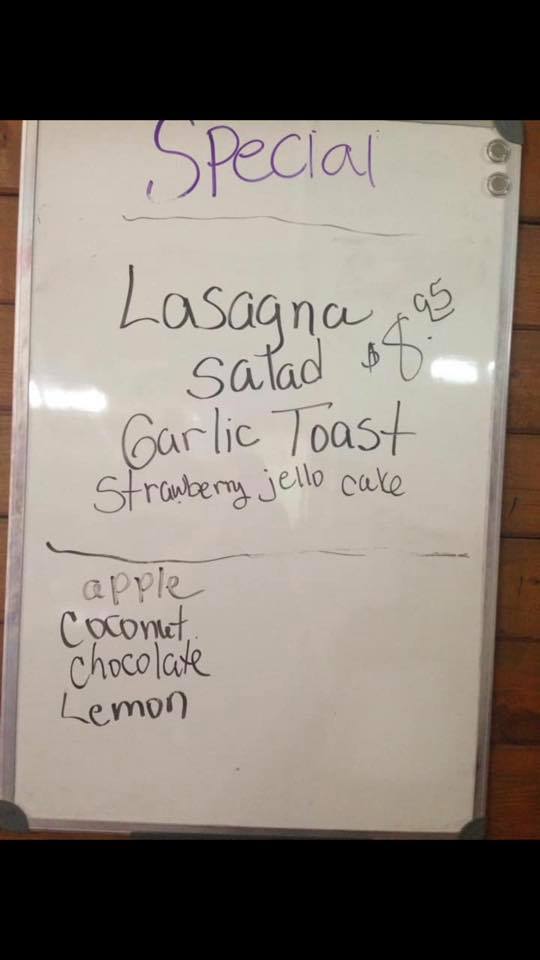 Special
Lasagna
Salad $8.95
Garlic Toast
Strawberry jello cake
apple
Coconut
Chocolate
Lemon